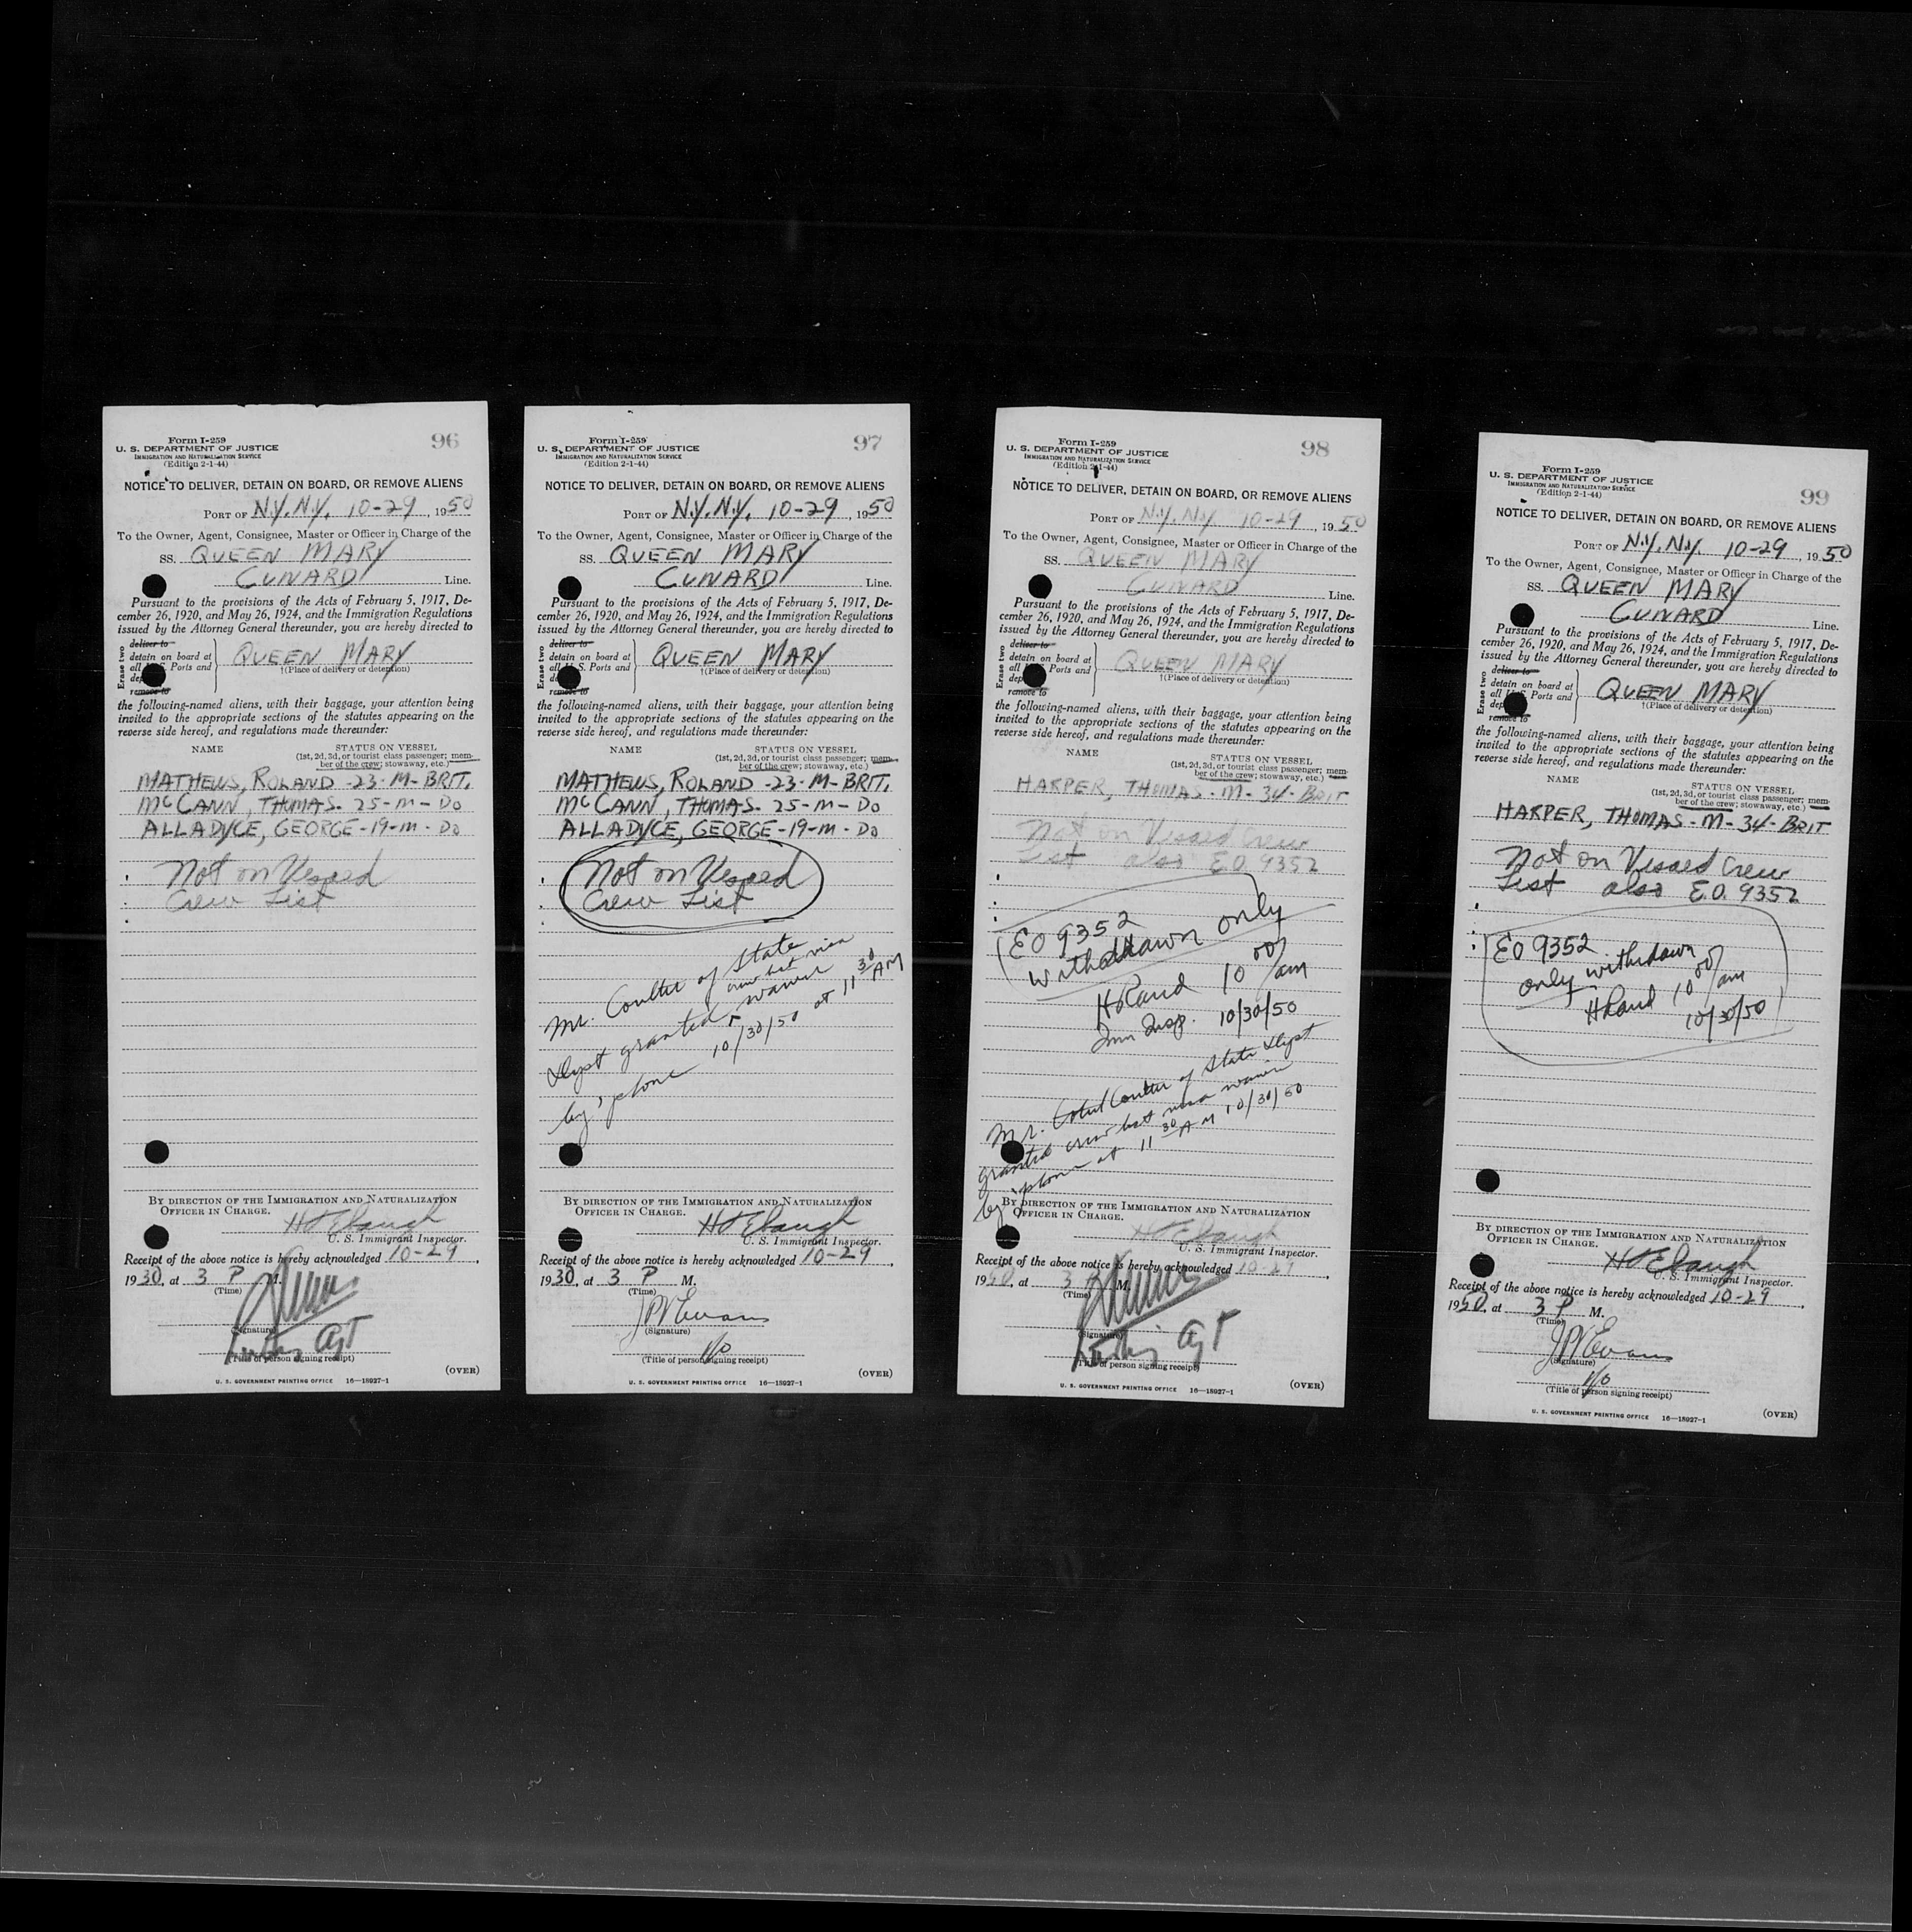 Form I-259
96
U. S. DEPARTMENT OF JUSTICE
IMMIGRATION AND NATURALIZATION SERVICE
(Edition 2-1-44)
NOTICE TO DELIVER, DETAIN ON BOARD, OR REMOVE ALIENS
PORT OF N.Y. N.Y. 10-29, 1950
To the Owner, Agent, Consignee, Master or Officer in Charge of the
SS. QUEEN MARY
CUNARD Line.
Pursuant to the provisions of the Acts of February 5, 1917, De-
cember 26, 1920, and May 26, 1924, and the Immigration Regulations
issued by the Attorney General thereunder, you are hereby directed to
Erase two
deliver to
detain on board at
all U. S. Ports and
remove to
QUEEN MARY
†(Place of delivery or detention)
the following-named aliens, with their baggage, your attention being
invited to the appropriate sections of the statutes appearing on the
reverse side hereof, and regulations made thereunder:
NAME STATUS ON VESSEL
(1st, 2d, 3d, or tourist class passenger; mem-
ber of the crew; stowaway, etc.)
MATHEWS, ROLAND -23- M- BRIT.
McCANN, THOMAS- 25-M- DO
ALLADYCE, GEORGE-19-M- DO
Not on Vissed
Crew List
BY DIRECTION OF THE IMMIGRATION AND NATURALIZATION
OFFICER IN CHARGE.
H Ebaugh
U. S. Immigrant Inspector.
Receipt of the above notice is hereby acknowledged 10-29,
1930, at 3 P M.
(Time)
(Signature)
AgT
(Title of person signing receipt)
(OVER)
U. S. GOVERNMENT PRINTING OFFICE 16—18927-1
Form I-259
97
U. S. DEPARTMENT OF JUSTICE
IMMIGRATION AND NATURALIZATION SERVICE
(Edition 2-1-44)
NOTICE TO DELIVER, DETAIN ON BOARD, OR REMOVE ALIENS
PORT OF N.Y. N.Y. 10-29, 1950
To the Owner, Agent, Consignee, Master or Officer in Charge of the
SS. QUEEN MARY
CUNARD Line.
Pursuant to the provisions of the Acts of February 5, 1917, De-
cember 26, 1920, and May 26, 1924, and the Immigration Regulations
issued by the Attorney General thereunder, you are hereby directed to
Erase two
deliver to
detain on board at
all U. S. Ports and
remove to
QUEEN MARY
†(Place of delivery or detention)
the following-named aliens, with their baggage, your attention being
invited to the appropriate sections of the statutes appearing on the
reverse side hereof, and regulations made thereunder:
NAME STATUS ON VESSEL
(1st, 2d, 3d, or tourist class passenger; mem-
ber of the crew; stowaway, etc.)
MATHEWS, ROLAND -23- M- BRIT.
McCANN, THOMAS- 25-M- DO
ALLADYCE, GEORGE-19-M- DO
Not on Vissed
Crew List
Mr. Coulter of State
Dept granted crew list visa waiver
by 'phone 10/30/50 at 11 30 AM
BY DIRECTION OF THE IMMIGRATION AND NATURALIZATION
OFFICER IN CHARGE.
H Ebaugh
U. S. Immigrant Inspector.
Receipt of the above notice is hereby acknowledged 10-29,
1930, at 3 P M.
JW Evans
(Signature)
(Title of person signing receipt)
(OVER)
U. S. GOVERNMENT PRINTING OFFICE 16—18927-1
Form I-259
98
U. S. DEPARTMENT OF JUSTICE
IMMIGRATION AND NATURALIZATION SERVICE
(Edition 2-1-44)
NOTICE TO DELIVER, DETAIN ON BOARD, OR REMOVE ALIENS
PORT OF N.Y. N.Y. 10-29, 1950
To the Owner, Agent, Consignee, Master or Officer in Charge of the
SS. QUEEN MARY
CUNARD Line.
Pursuant to the provisions of the Acts of February 5, 1917, De-
cember 26, 1920, and May 26, 1924, and the Immigration Regulations
issued by the Attorney General thereunder, you are hereby directed to
Erase two
deliver to
detain on board at
all U. S. Ports and
remove to
QUEEN MARY
†(Place of delivery or detention)
the following-named aliens, with their baggage, your attention being
invited to the appropriate sections of the statutes appearing on the
reverse side hereof, and regulations made thereunder:
NAME
STATUS ON VESSEL
(1st, 2d, 3d, or tourist class passenger; mem-
ber of the crew; stowaway, etc.)
HARPER, THOMAS- M- 34- BRIT
Not on Vissed Crew
List also E.O. 9352
EO 9352
withdrawn only
HRand 10 00/am
Imm Insp. 10/30/50
Mr. Coulter of State Dept
granted crew list visa waiver
by 'phone at 11 30 AM 10/30/50
BY DIRECTION OF THE IMMIGRATION AND NATURALIZATION
OFFICER IN CHARGE.
H Ebaugh
U. S. Immigrant Inspector.
Receipt of the above notice is hereby acknowledged 10-29,
1950, at 3 P M.
(Time)
(Signature)
AgT
(Title of person signing receipt)
(OVER)
U. S. GOVERNMENT PRINTING OFFICE 16—18927-1
Form I-259
99
U. S. DEPARTMENT OF JUSTICE
IMMIGRATION AND NATURALIZATION SERVICE
(Edition 2-1-44)
NOTICE TO DELIVER, DETAIN ON BOARD, OR REMOVE ALIENS
PORT OF N.Y. N.Y. 10-29, 1950
To the Owner, Agent, Consignee, Master or Officer in Charge of the
SS. QUEEN MARY
CUNARD Line.
Pursuant to the provisions of the Acts of February 5, 1917, De-
cember 26, 1920, and May 26, 1924, and the Immigration Regulations
issued by the Attorney General thereunder, you are hereby directed to
Erase two
deliver to
detain on board at
all U. S. Ports and
remove to
QUEEN MARY
†(Place of delivery or detention)
the following-named aliens, with their baggage, your attention being
invited to the appropriate sections of the statutes appearing on the
reverse side hereof, and regulations made thereunder:
NAME
STATUS ON VESSEL
(1st, 2d, 3d, or tourist class passenger; mem-
ber of the crew; stowaway, etc.)
HARPER, THOMAS- M- 34- BRIT
Not on Vissed Crew
List also E.O. 9352
EO 9352
only withdrawn
HRand 10 00/am
10/30/50
BY DIRECTION OF THE IMMIGRATION AND NATURALIZATION
OFFICER IN CHARGE.
H Ebaugh
U. S. Immigrant Inspector.
Receipt of the above notice is hereby acknowledged 10-29,
1950, at 3 P M.
(Time)
JW Evans
(Signature)
(Title of person signing receipt)
(OVER)
U. S. GOVERNMENT PRINTING OFFICE 16—18927-1